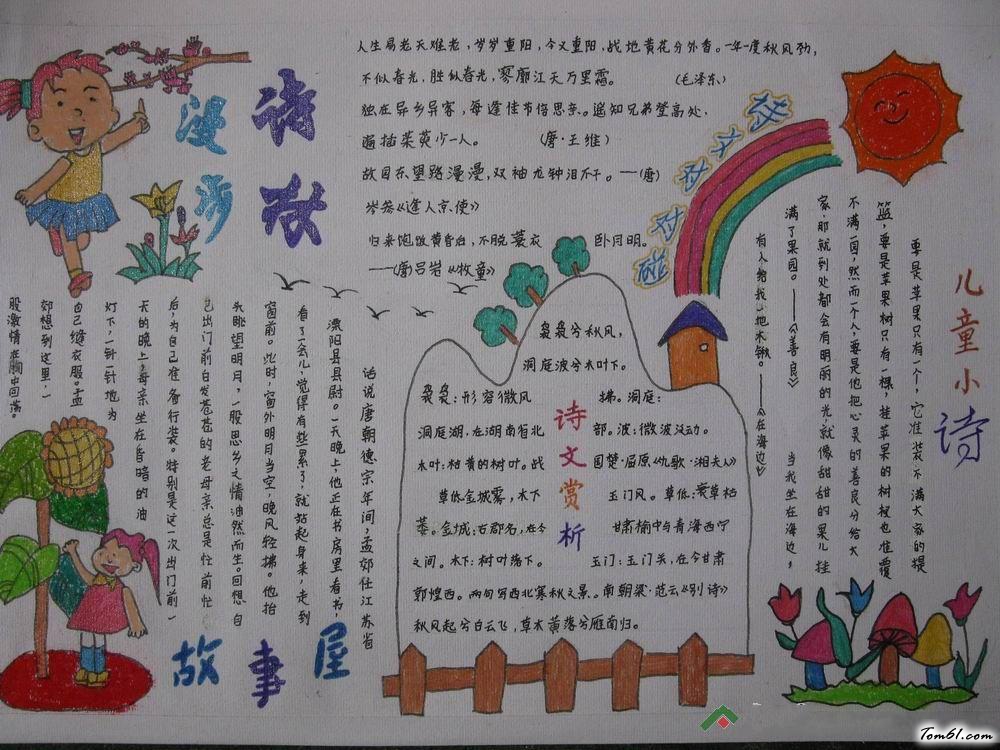 诗歌
漫步
人生易老天难老,岁岁重阳,今又重阳,战地黄花分外香。一年一度秋风劲,
不似春光,胜似春光,寥廓江天万里霜。 (毛泽东)
独在异乡异客,每逢佳节倍思亲。遥知兄弟登高处,
遍插茱萸少一人。 (唐·王维)
故园东望路漫漫,双袖龙钟泪不干。——(唐)
岑参《逢人京使》
归来饱饭黄昏后,不脱蓑衣卧月明。
——(唐)吕岩《牧童》
对对碰
儿童小诗
要是苹果只有一个,它准装不满大家的提
篮,要是苹果树只有一棵,挂苹果的树杈也准覆
不满一园,然而一个人,要是他把心灵的善良分给大
家,那就到处都会有明丽的光,就像甜甜的果儿挂
满了果园。——《善良》
当我坐在海边,
有人给我一把木锹。——《在海边》
故事屋
话说唐朝德宗年间,孟郊任江苏省
溧阳县县尉。一天晚上,他正在书房里看书,
看了一会儿,觉得有些累了,就站起身来,走到
窗前。此时,窗外明月当空,晚风轻拂。他抬
头眺望明月,一股思乡之情油然而生。回想自
己出门前白发苍苍的老母亲总是忙前忙
后,为自己准备行装。特别是这一次出门前一
天的晚上,母亲坐在昏暗的油
灯下,一针一针地为
自己缝衣服。孟
郊想到这里,一
股激情在胸中回荡。
诗文赏析
袅袅兮秋风,
洞庭波兮木叶下。
袅袅:形容微风拂。洞庭:
洞庭湖,在湖南省北部。波:微波泛动。
木叶:枯黄的树叶。战国楚·屈原《九歌·湘夫人》
草低金城雾,木下玉门风。草低:衰草枯
萎。金城:古郡名,在今甘肃榆中与青海西宁
之间。木下:树叶落下。玉门:玉门关,在今甘肃
郭煌西。两句写西北寒秋之景。南朝梁·范云《别诗》
秋风起兮白云飞,草木黄落兮雁南归。
Tom61.com